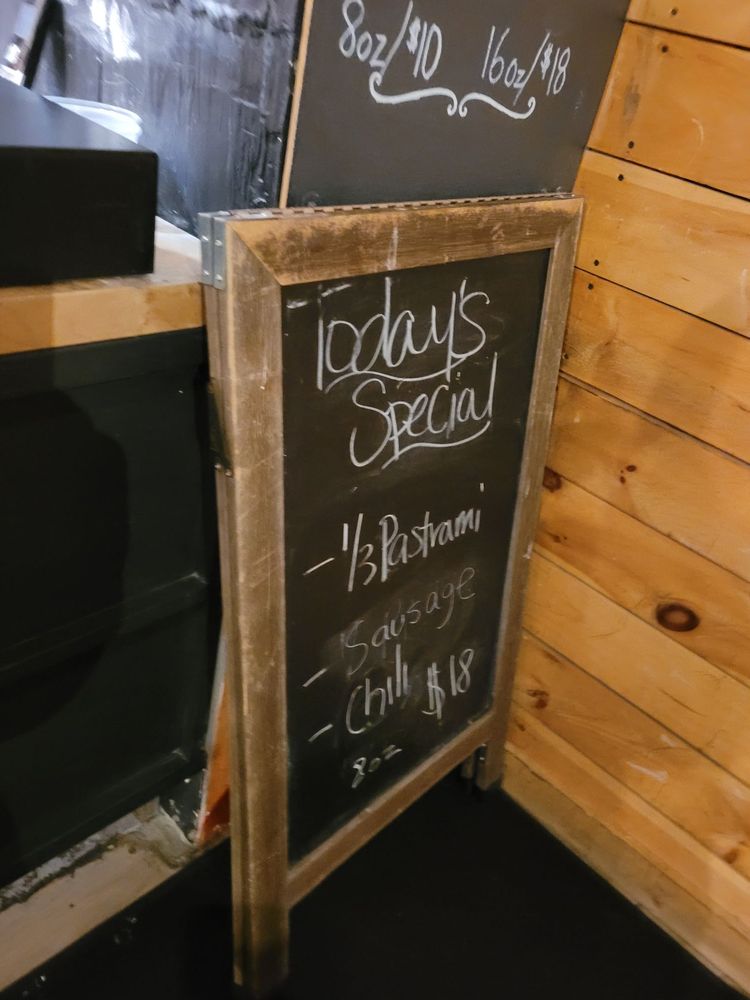 8oz/$10 16oz/$18
Today's
Special
- 1/3 Pastrami
- Sausage
- Chili $18
8oz